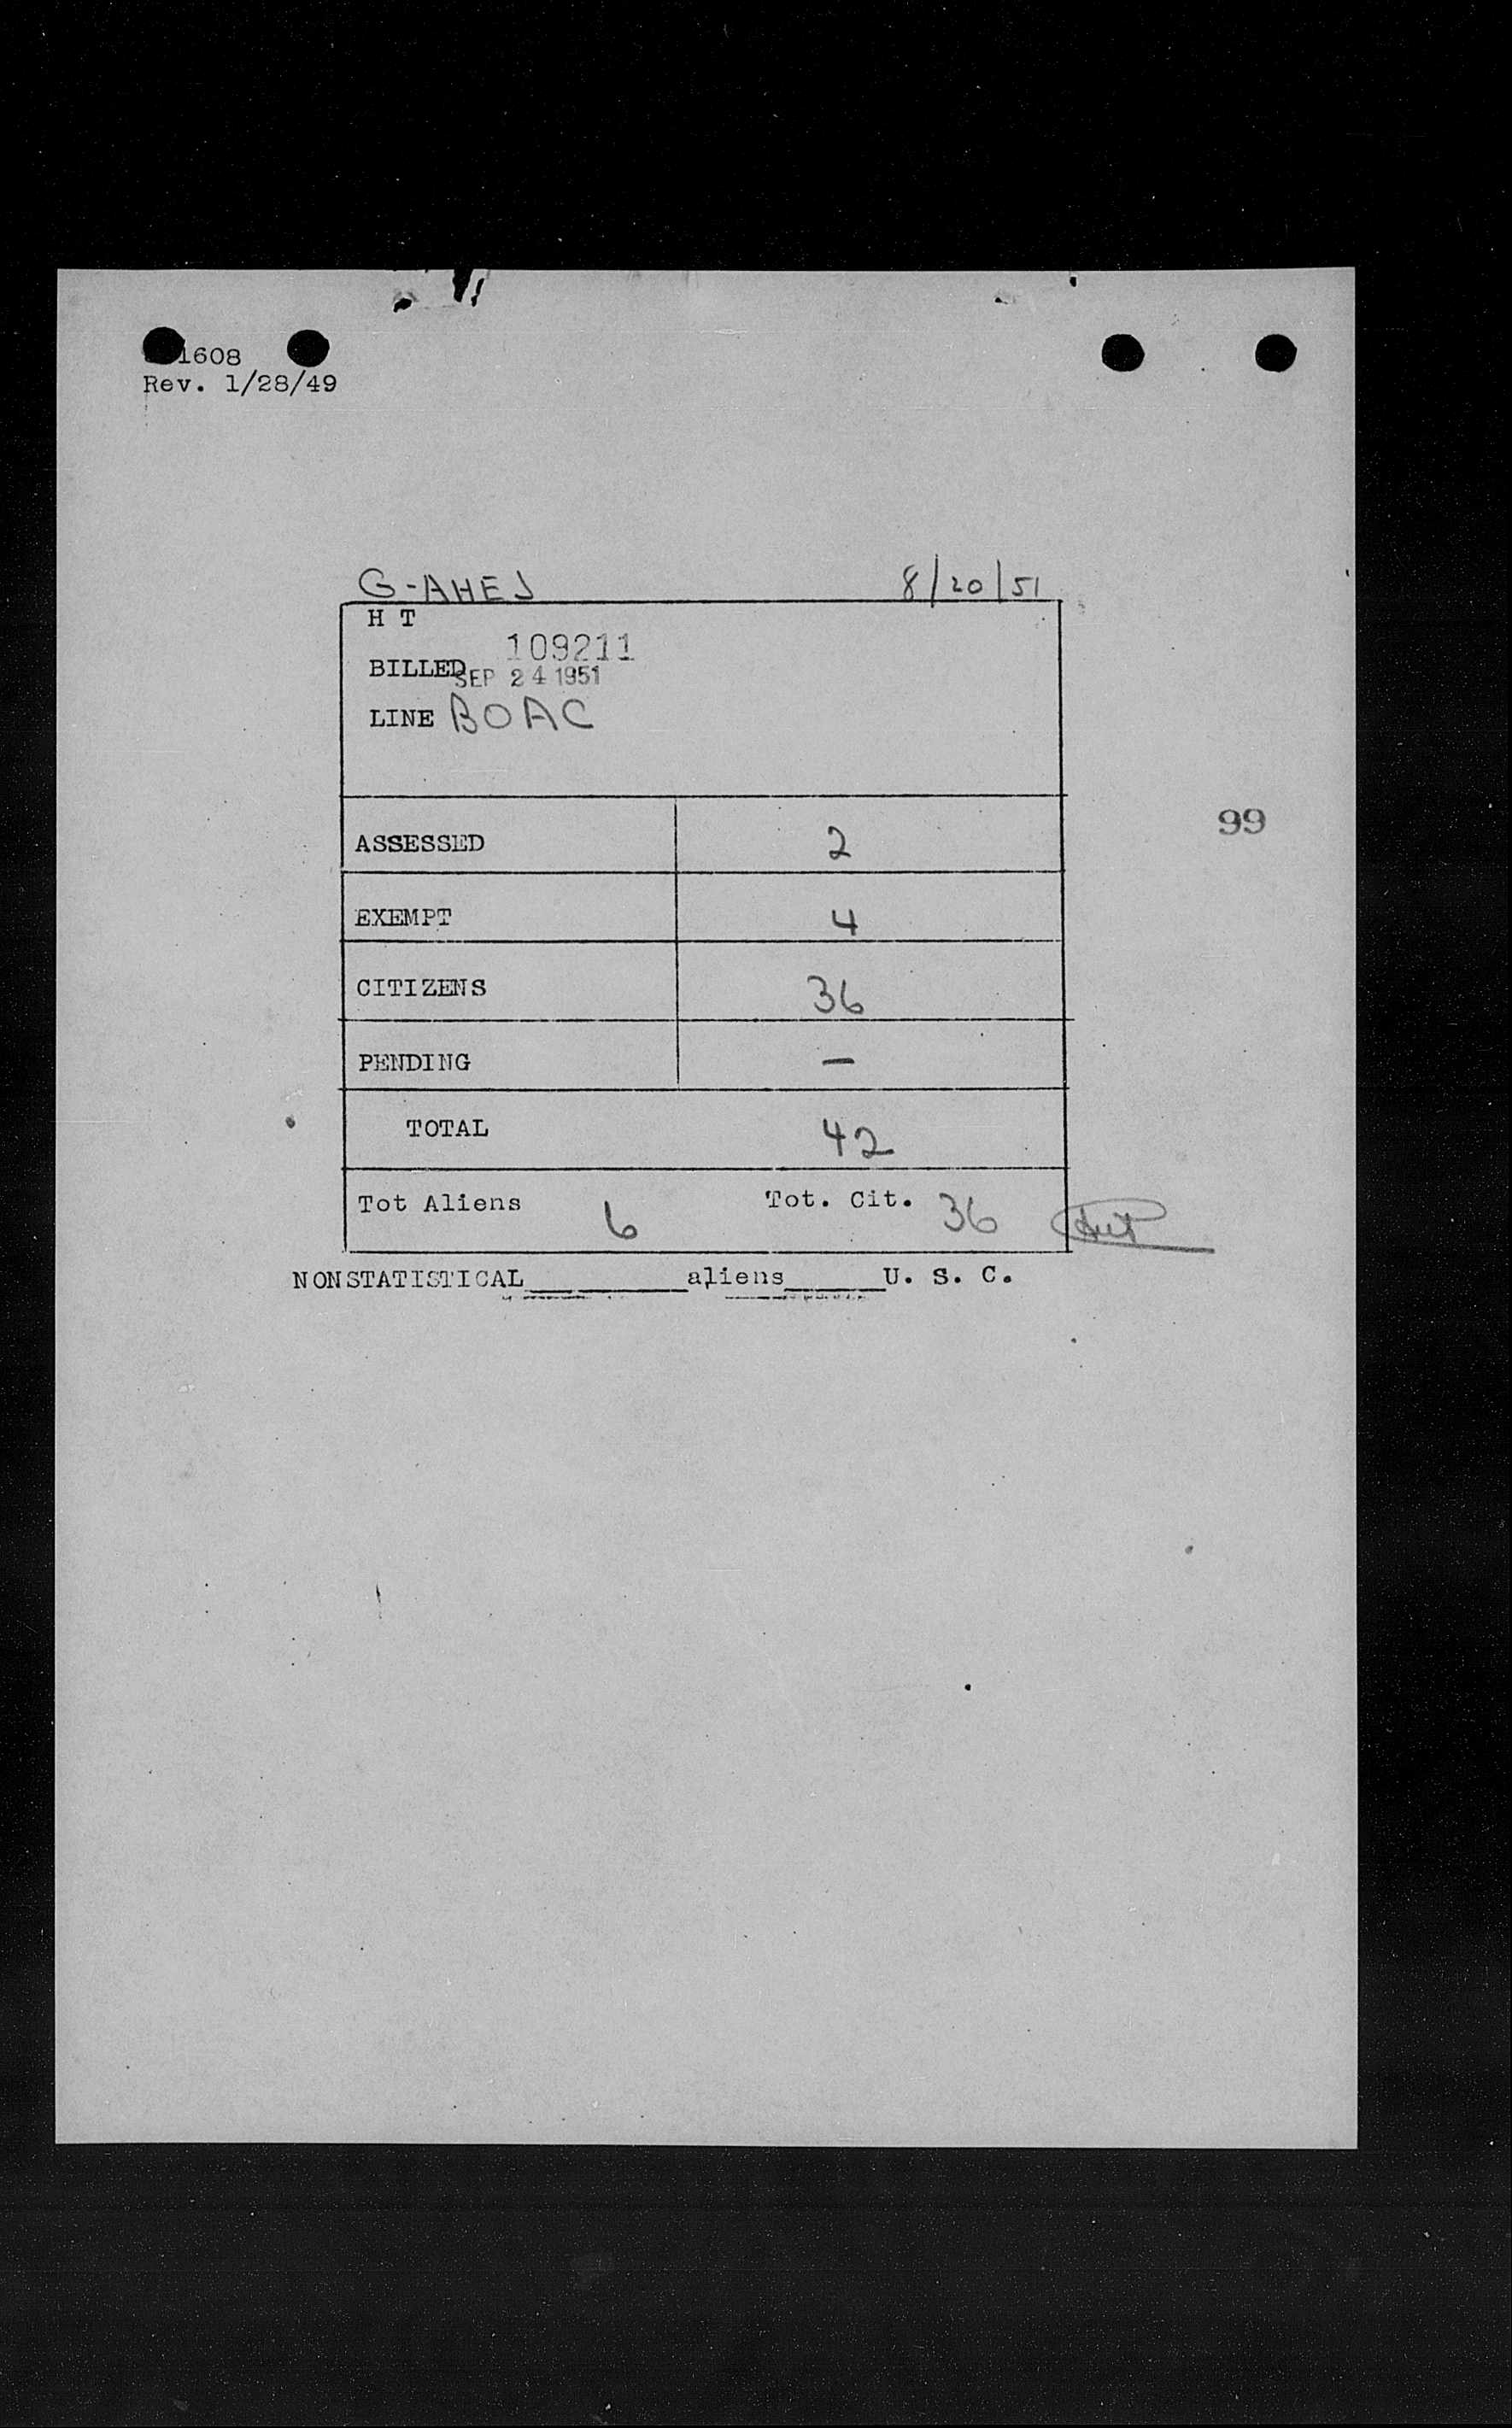 1608
Rev. 1/28/49
G-AHEJ 8/20/51
H T
109211
BILLED SEP 24 1951
LINE BOAC
99
ASSESSED 2
EXEMPT 4
CITIZENS 36
PENDING —
TOTAL 42
Tot Aliens 6 Tot. Cit. 36
NONSTATISTICAL________aliens_____U. S. C.